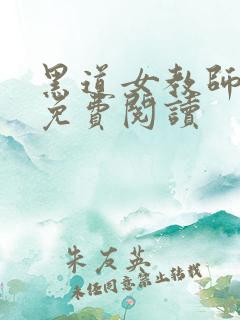 黑道女教師
免費閱讀
朱友英
未经同意禁止转载